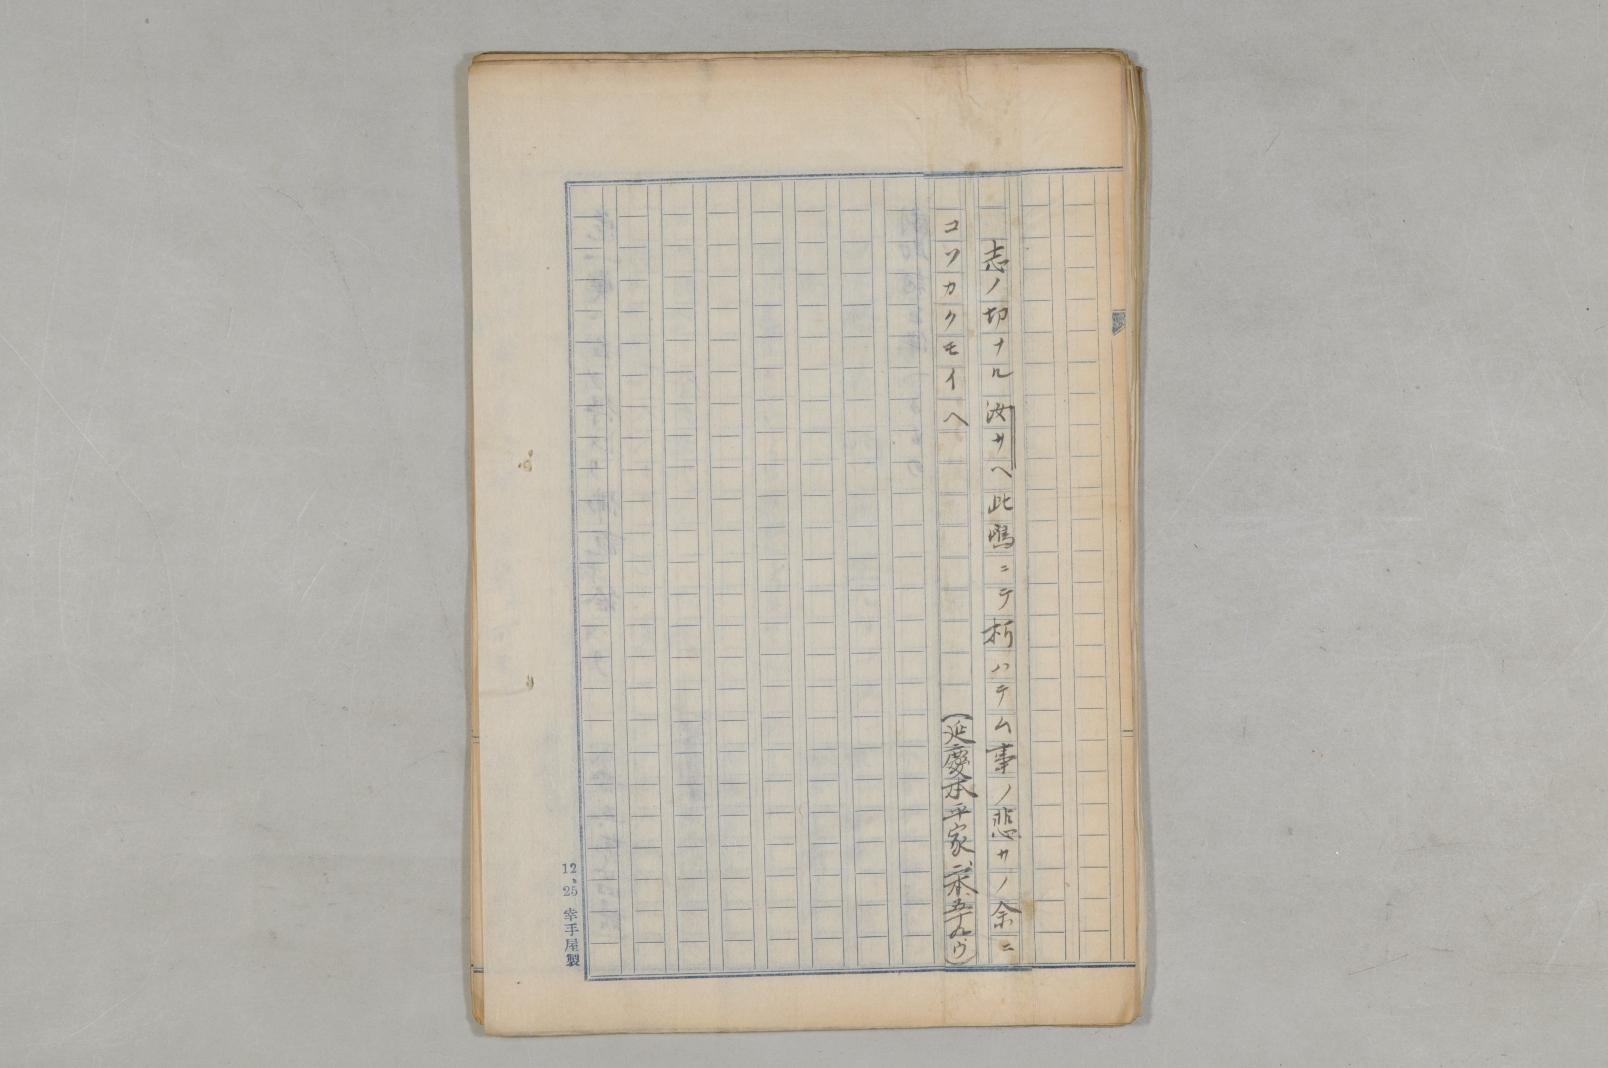 志ノ切ナル汝サヘ此嶋ニテ朽ハテム事ノ悲サノ余ニ
コソカクモイヘ
(延慶本平家二本、五十九ウ)
12、25 幸手屋製